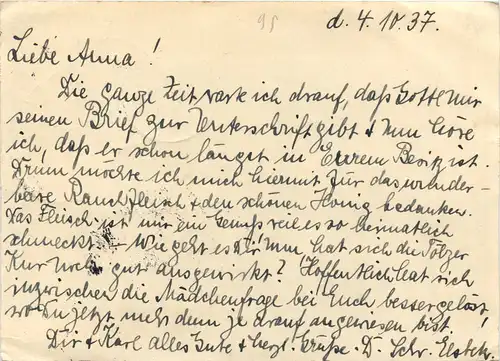 95
d. 4. 10. 37.
Liebe Anna!
Die ganze Zeit wart ich drauf, daß Gottl mir
seinen Brief zur Unterschrift gibt & nun höre
ich, daß er schon längst in Eurem Besitz ist.
Drum möchte ich mich hiermit für das wunder-
bare Rauchfleisch & den schönen Honig bedanken.
Das Fleisch ist mir ein Genuß weil es so heimatlich
schmeckt. - Wie geht es Dir? Nun hat sich die Tölzer
Kur gut ausgewirkt? Hoffentlich hat sich
inzwischen die Mädchenfrage bei Euch besser gelöst,
wo Du jetzt mehr denn je drauf angewiesen bist.
Dir & Karl alles Gute & herzl. Grüße. D. Schw. Elsbeth.